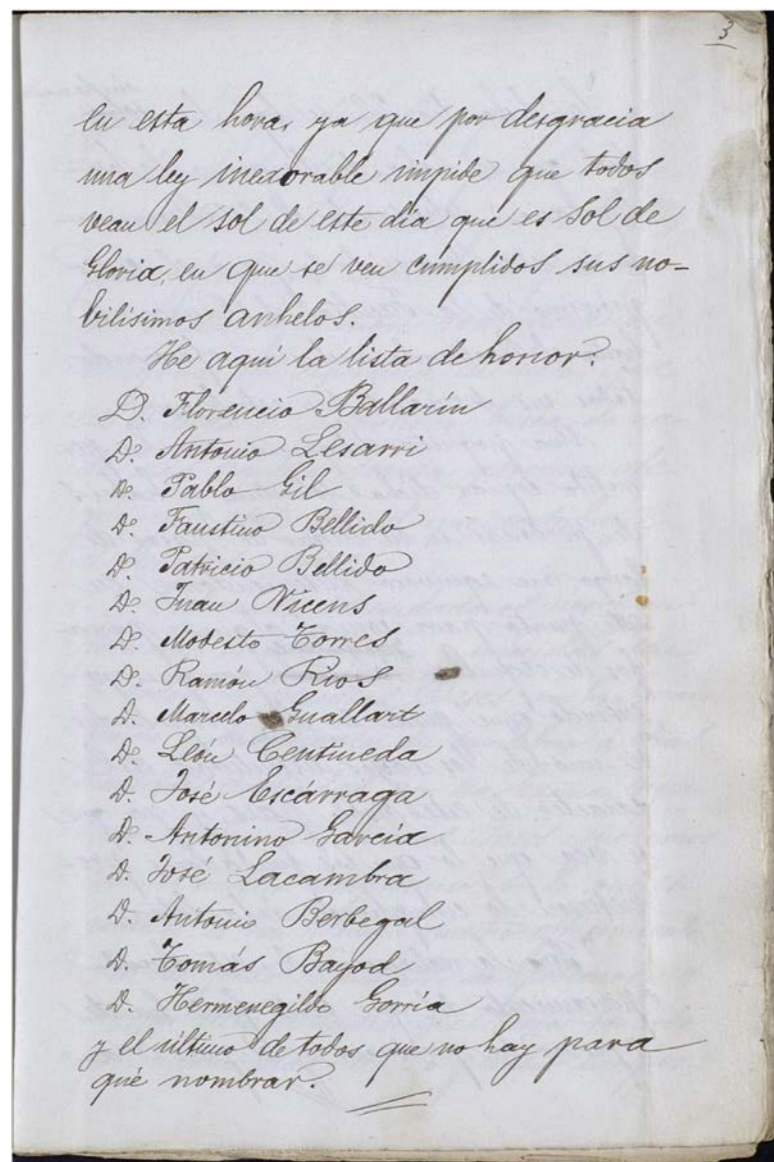 3
en esta hora, ya que por desgracia
una ley inexorable impide que todos
vean el sol de este día que es Sol de
Gloria, en que se ven cumplidos sus no-
bilísimos anhelos.
He aquí la lista de honor:
D. Florencio Ballarín
D. Antonio Lesarri
D. Pablo Gil
D. Faustino Bellido
D. Patricio Bellido
D. Juan Vicens
D. Modesto Torres
D. Ramón Ríos
D. Marcelo Guallart
D. León Centineda
D. José Escárraga
D. Antonino García
D. José Lacambra
D. Antonio Berbegal
D. Tomás Bayod
D. Hermenegildo Gorría
y el último de todos que no hay para
qué nombrar.